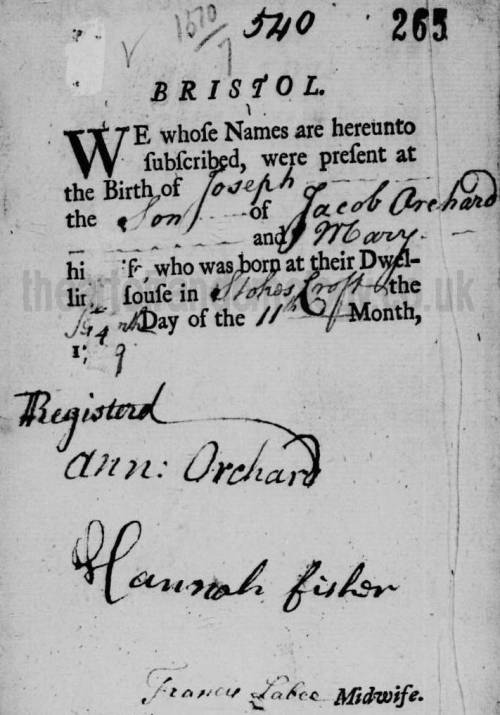 1570/7 540 265
BRISTOL.
WE whoſe Names are hereunto
ſubſcribed, were preſent at
the Birth of Joseph
the Son of Jacob Orchard
and Mary
hi iſe, who was born at their Dwel-
lin Houſe in Stokes Croft the
Day of the 11th Month,
9
Registerd
Ann: Orchard
Hannah Fisher
Francis Midwife.